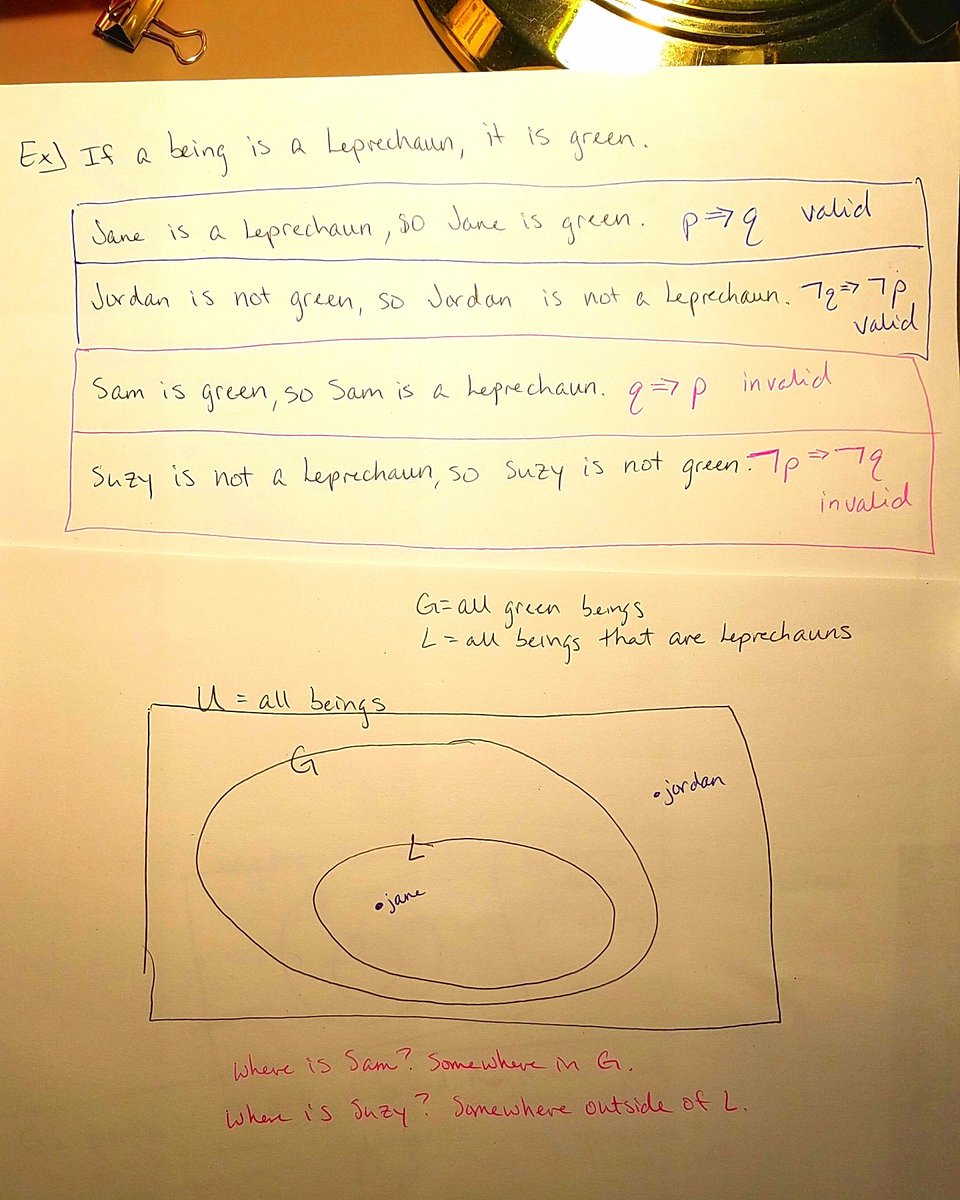 Ex] If a being is a Leprechaun, it is green.
Jane is a Leprechaun, so Jane is green. p ⇒ q valid
Jordan is not green, so Jordan is not a Leprechaun. ¬q ⇒ ¬p
valid
Sam is green, so Sam is a Leprechaun. q ⇒ p invalid
Suzy is not a Leprechaun, so Suzy is not green. ¬p ⇒ ¬q
invalid
G = all green beings
L = all beings that are Leprechauns
U = all beings
G
•jordan
L
•jane
Where is Sam? Somewhere in G.
Where is Suzy? Somewhere outside of L.